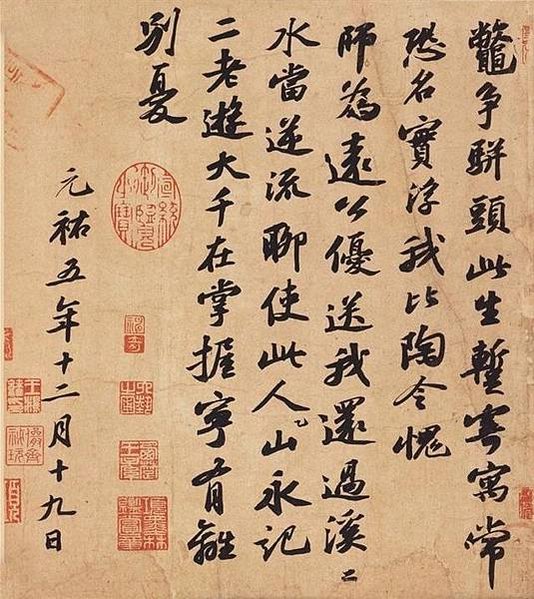 鼈争駢頭此生暫寄寓常
恐名實浮我比陶令愧
師為遠公優送我還過溪二
水當逆流聊使此人山永記
二老遊大千在掌握寧有離
別憂
元祐五年十二月十九日